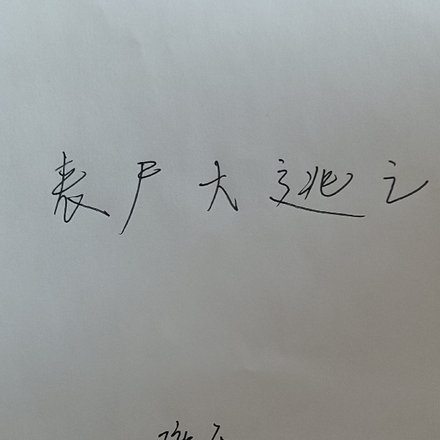 丧尸大逃亡